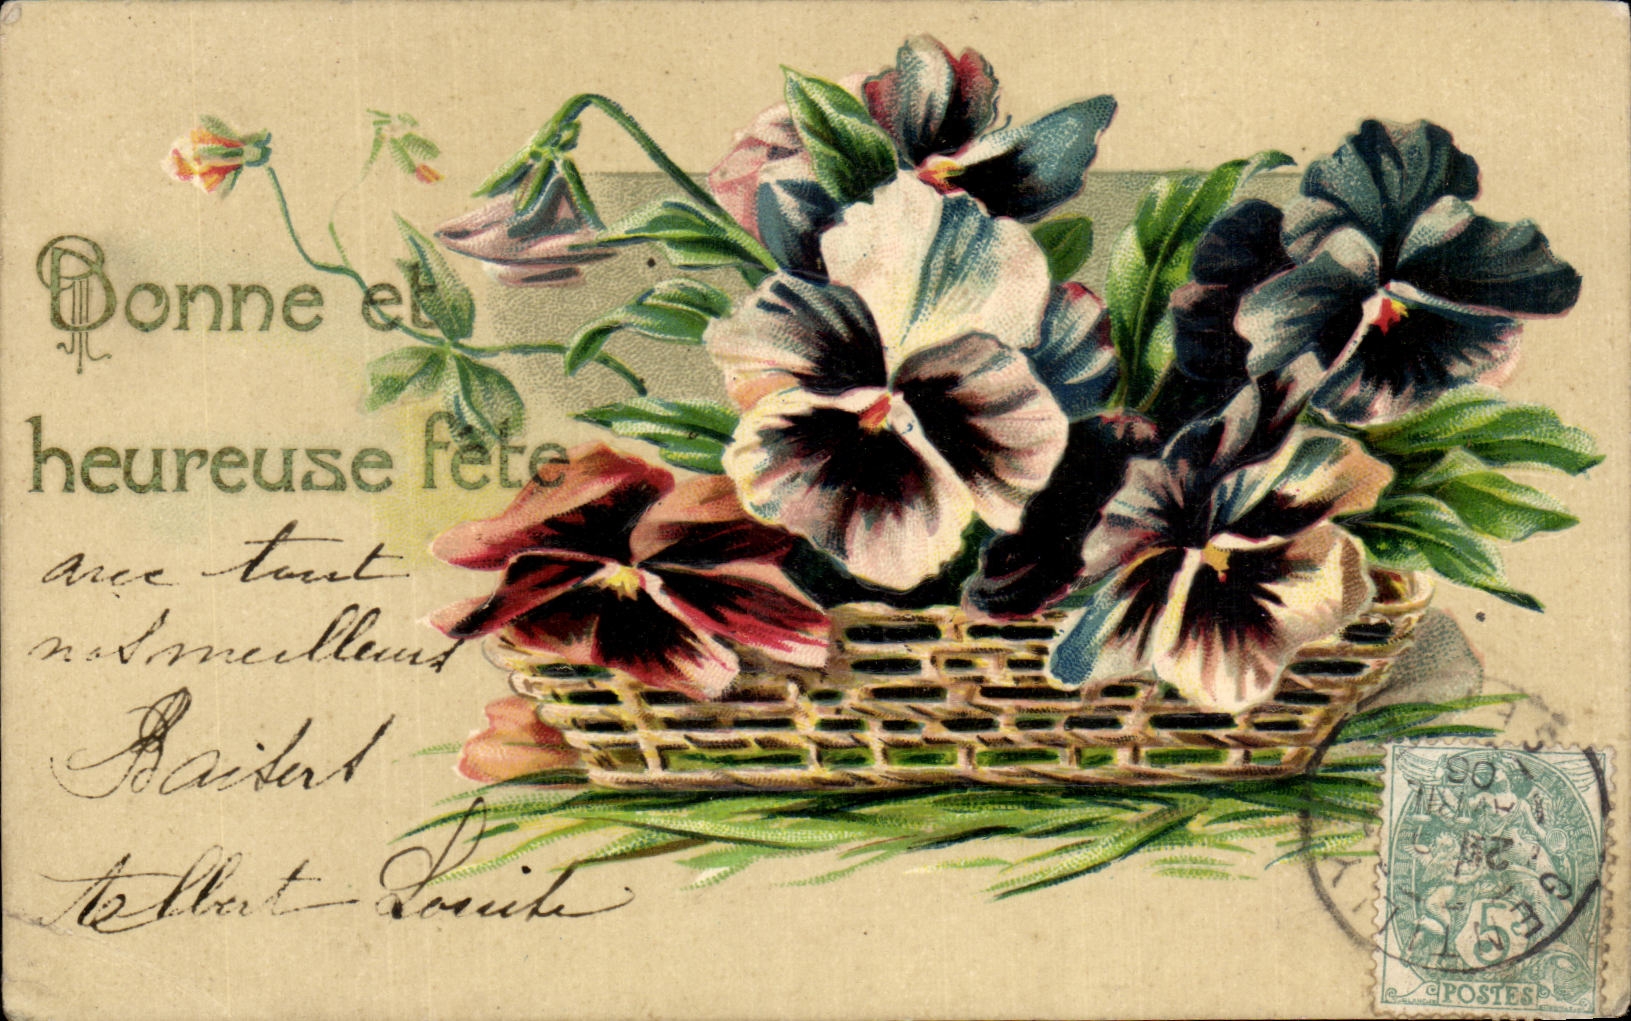 Bonne et
heureuse fête
avec tout
nos meilleurs
Baisers
Albert Louise
5
POSTES